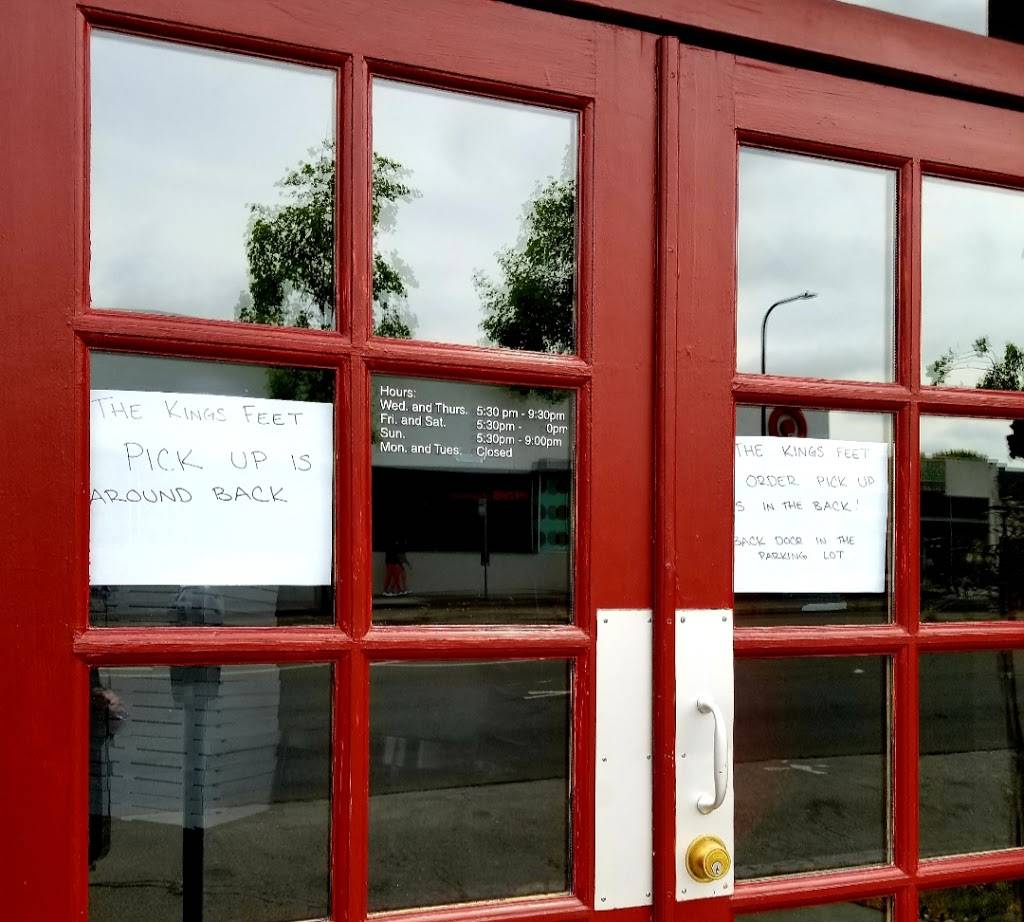 THE KINGS FEET
PICK UP IS
AROUND BACK
Hours:
Wed. and Thurs. 5:30 pm - 9:30pm
Fri. and Sat. 5:30pm - 0pm
Sun. 5:30pm - 9:00pm
Mon. and Tues. Closed
THE KINGS FEET
ORDER PICK UP
S IN THE BACK!
BACK DOOR IN THE
PARKING LOT